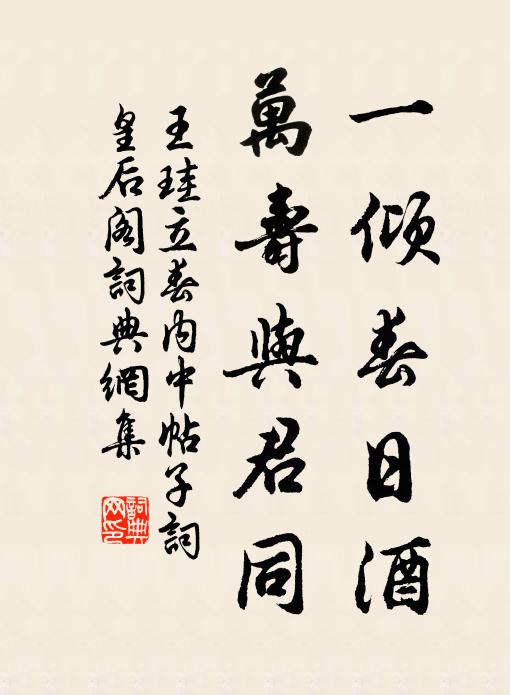 一傾春日酒
萬壽與君同
王珪立春内中帖子詞
皇后閣詞典網集
詞典網印